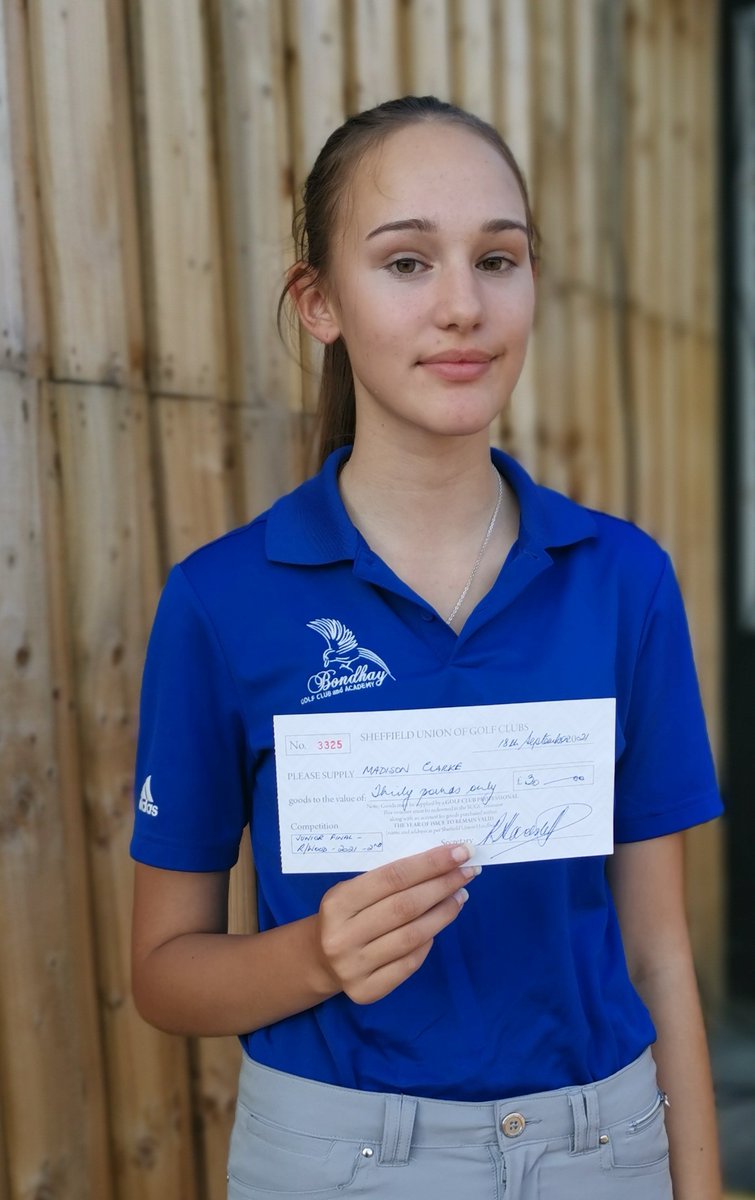 Bondhay
GOLF CLUB and ACADEMY
adidas
No. 3325 SHEFFIELD UNION OF GOLF CLUBS
18th September 2021
PLEASE SUPPLY MADISON CLARKE
goods to the value of: Thirty pounds only £30 — 00
Note: Goods must be supplied by a GOLF CLUB PROFESSIONAL
THE YEAR OF ISSUE TO REMAIN VALID
Competition
JUNIOR FINAL -
R/WOOD - 2021 - 2ND
Secretary